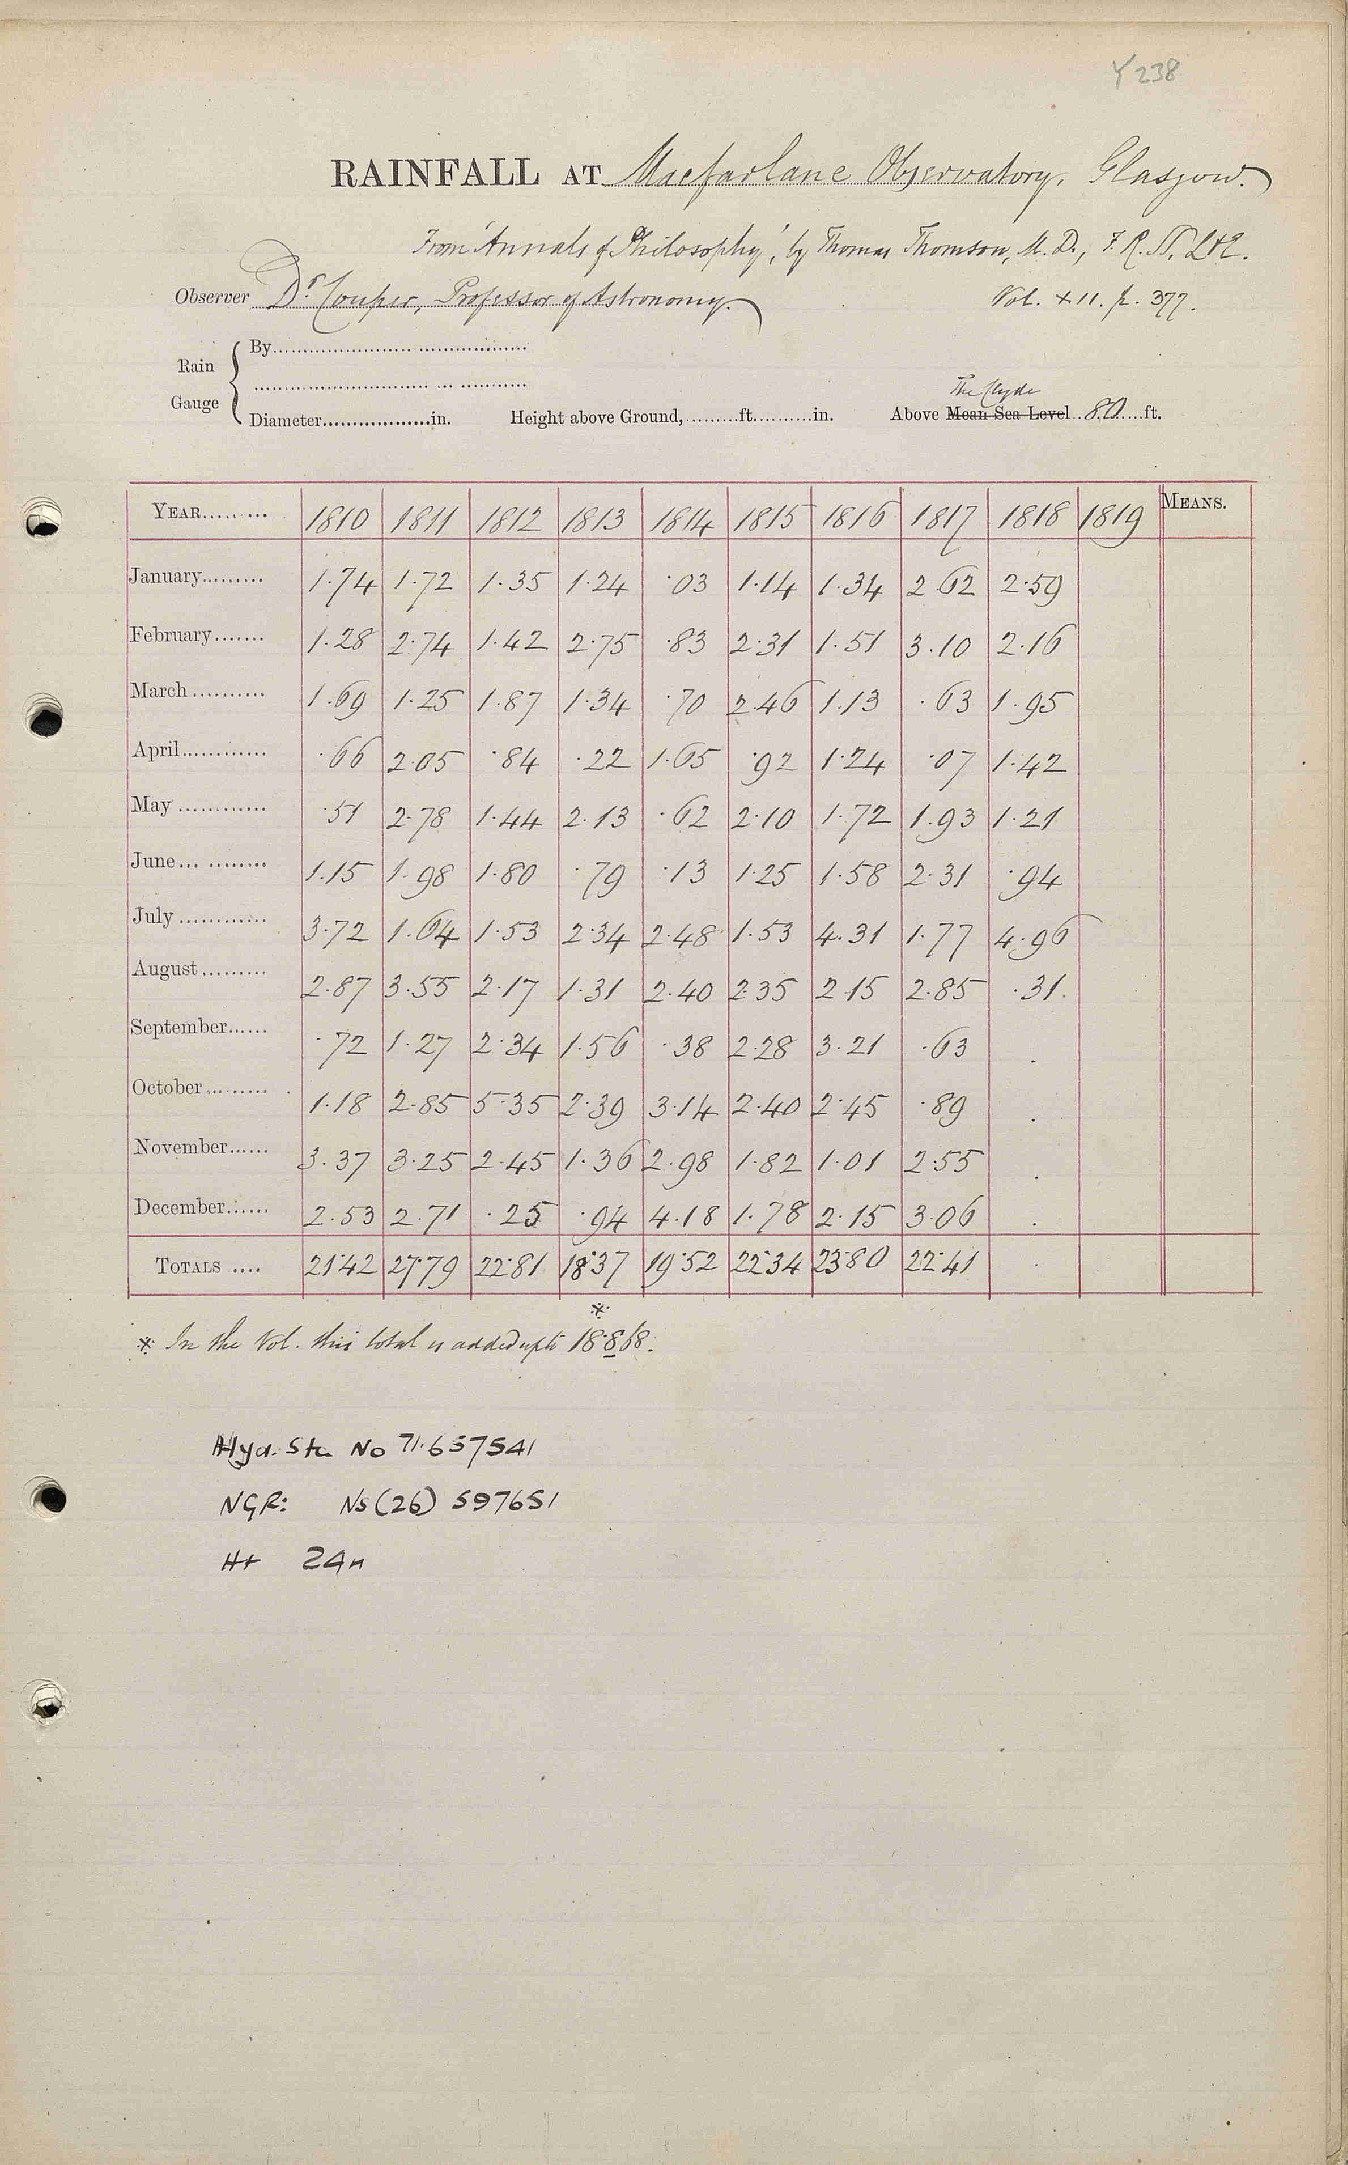 Y 238
RAINFALL AT Macfarlane Observatory, Glasgow.
From 'Annals of Philosophy', by Thomas Thomson, M.D., F.R.S. L&E.
Observer Dr. Couper, Professor of Astronomy. Vol. XII. p. 377.
Rain Gauge
By
Diameter in. Height above Ground, ft. in. Above Mean Sea Level The Clyde 80 ft.
YEAR 1810 1811 1812 1813 1814 1815 1816 1817 1818 1819 MEANS.
January 1.74 1.72 1.35 1.24 .03 1.14 1.34 2.62 2.59
February 1.28 2.74 1.42 2.75 .83 2.31 1.51 3.10 2.16
March 1.69 1.25 1.87 1.34 .70 2.46 1.13 .63 1.95
April .66 2.05 .84 .22 1.65 .92 1.24 .07 1.42
May .51 2.78 1.44 2.13 .62 2.10 1.72 1.93 1.21
June 1.15 1.98 1.80 .79 .13 1.25 1.58 2.31 .94
July 3.72 1.64 1.53 2.34 2.48 1.53 4.31 1.77 4.96
August 2.87 3.55 2.17 1.31 2.40 2.35 2.15 2.85 .31
September .72 1.27 2.34 1.56 .38 2.28 3.21 .63
October 1.18 2.85 5.35 2.39 3.14 2.40 2.45 .89
November 3.37 3.25 2.45 1.36 2.98 1.82 1.01 2.55
December 2.53 2.71 .25 .94 4.18 1.78 2.15 3.06
TOTALS 21.42 27.79 22.81 18.37 19.52 22.34 23.80 22.41
*
* In the Vol. this total is added up to 18.868.
Hyd. Stn No 71.657541
NGR: NS(26) 597651
Ht 24m